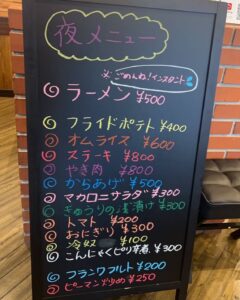 夜メニュー
※ごめんね!インスタント
ラーメン ¥500
フライドポテト ¥400
オムライス ¥600
ステーキ ¥800
やき肉 ¥800
からあげ ¥500
マカロニサラダ ¥300
きゅうりの浅漬け ¥300
トマト ¥200
おにぎり ¥300
冷奴 ¥100
こんにゃくピリ辛煮 ¥300
フランクフルト ¥200
ピーマン炒め ¥250